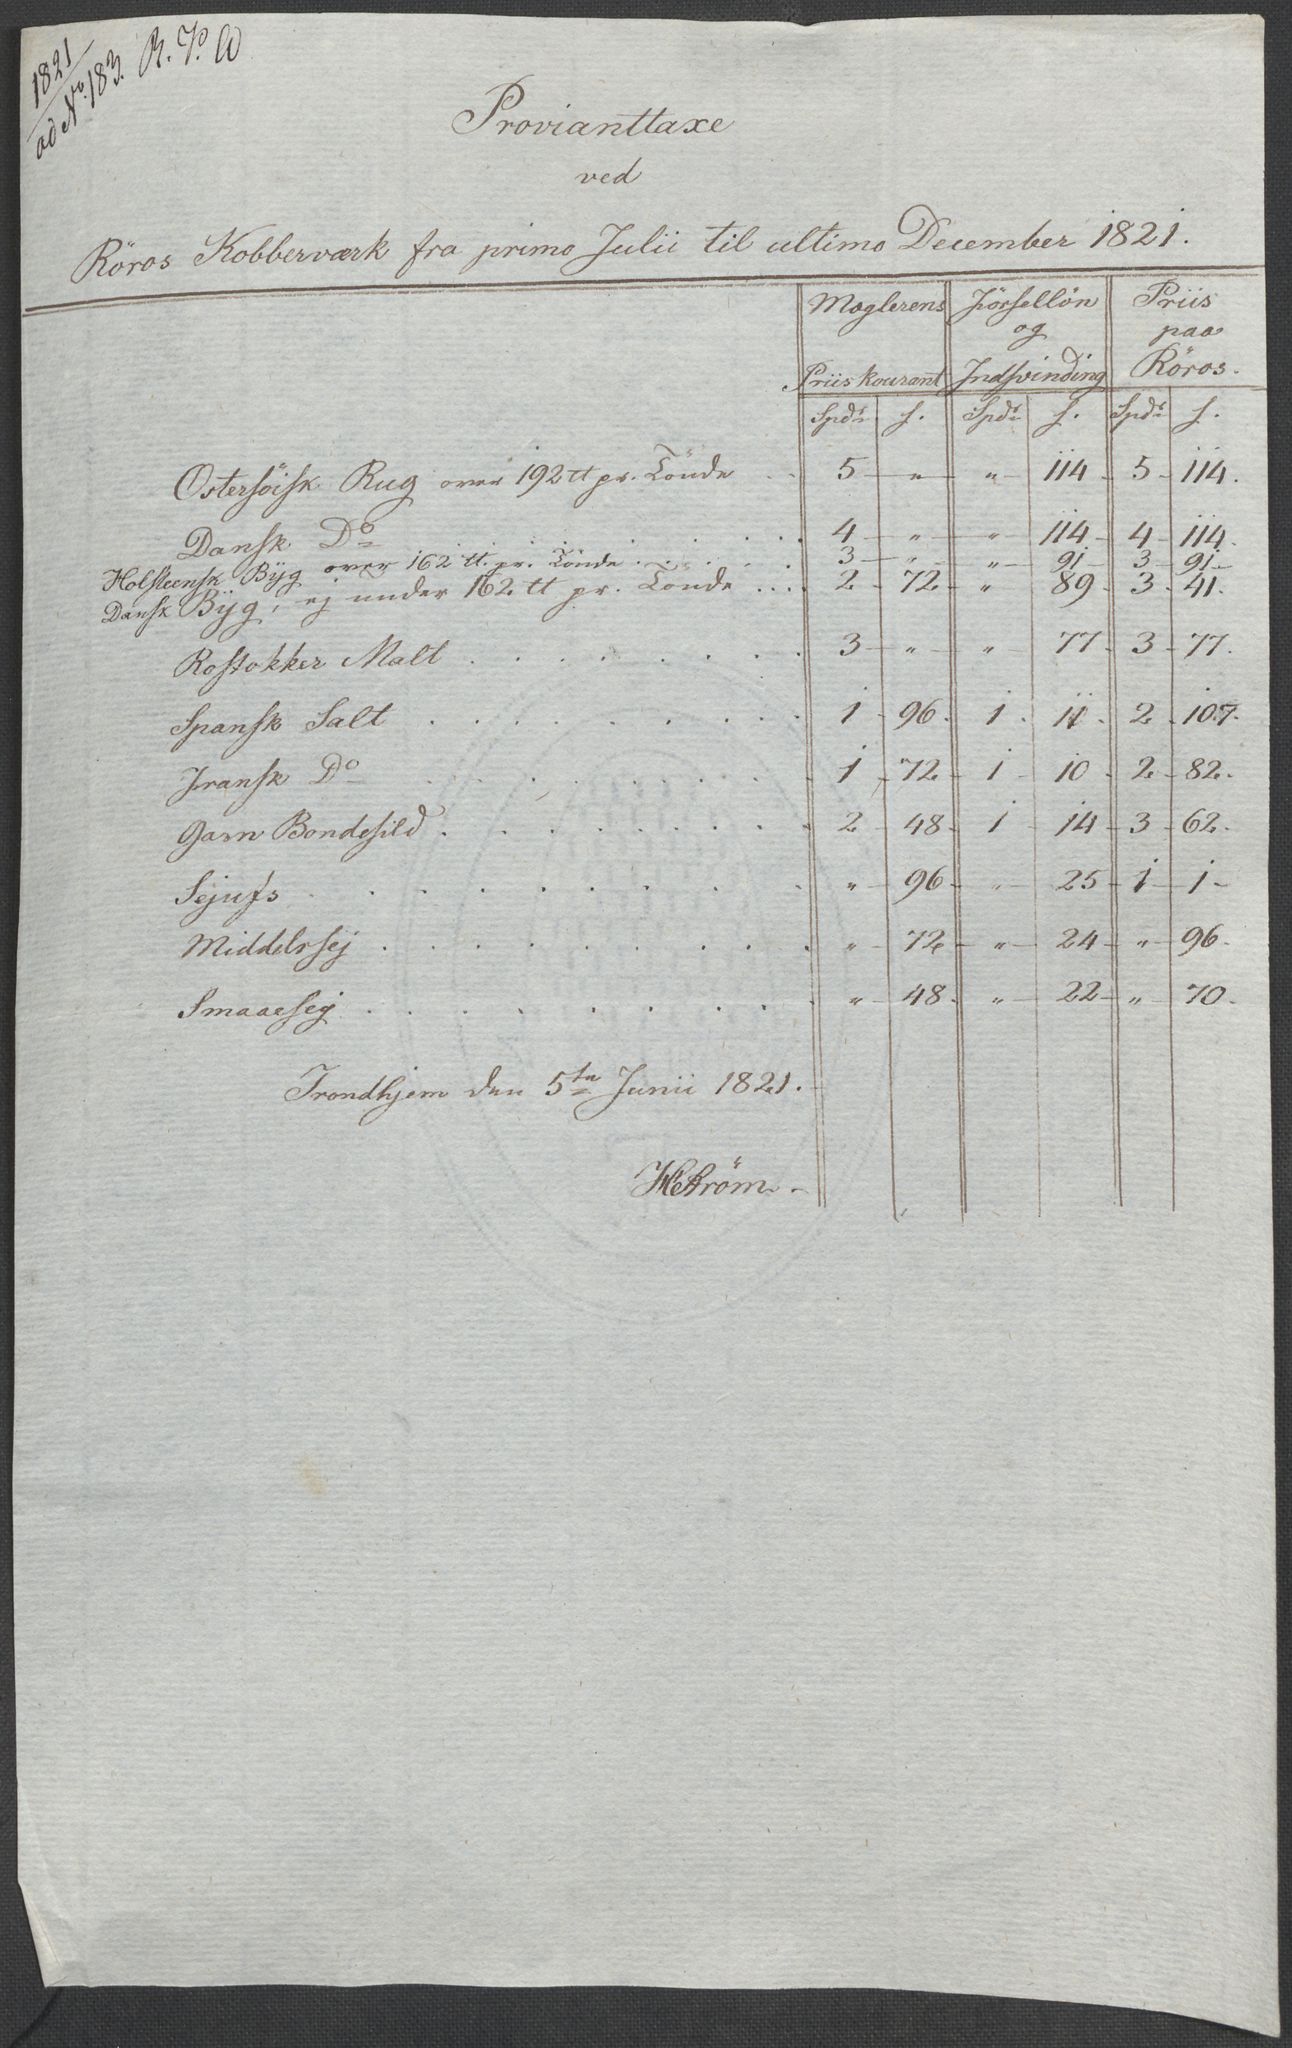 1821
ad No. 183. R. P. W
Provianttaxe
ved
Röros Kobberværk fra primo Julii til ultimo December 1821.
Mæglerens Försellön Priis
og paa
Priiskourant Indsvinding Röros.
Spdr. s. Spdr. s. Spdr. s.
Ostersöisk Rug over 192 tt pr. Tönde . . 5 - " - " - 114 - 5 - 114.
Dansk Do . . . . . . . . 4 - " - " - 114 - 4 - 114.
Holsteensk Byg over 162 tt. pr. Tönde . . . . . 3 - " - " - 91 - 3 - 91 -
Dansk Byg, ej under 162 tt pr. Tönde .... 2 - 72 - " - 89 - 3 - 41.
Rostokker Malt . . . . . . . . 3 - " - " - 77 - 3 - 77.
Spansk Salt . . . . . . . . 1 - 96 - 1 - 11 - 2 - 107.
Fransk Do . . . . . . . . 1 - 72 - 1 - 10 - 2 - 82.
Garn Bondesild . . . . . . . . 2 - 48 - 1 - 14 - 3 - 62.
Sejufs . . . . . . . . " - 96 - " - 25 - 1 - 1 -
Middelsej . . . . . . . . " - 72 - " - 24 - " - 96.
Smaaesej . . . . . . . . " - 48 - " - 22 - " - 70.
Trondhjem den 5te Junii 1821.